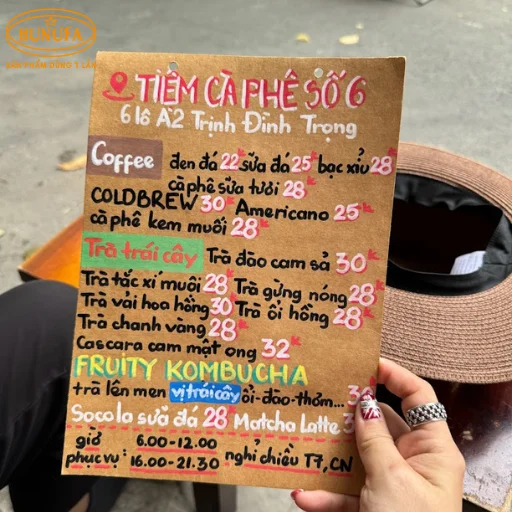 BUNUFA
TIỆM CÀ PHÊ SỐ 6
6 lô A2 Trịnh Đình Trọng
Coffee đen đá 22k sữa đá 25k bạc xỉu 28k
cà phê sữa tươi 28k
COLDBREW 30k Americano 25k
cà phê kem muối 28k
Trà trái cây Trà đào cam sả 30k
Trà tắc xí muội 28k Trà gừng nóng 28k
Trà vải hoa hồng 30k Trà ổi hồng 28k
Trà chanh vàng 28k
Cascara cam mật ong 32k
FRUITY KOMBUCHA
trà lên men vị trái cây ổi-đào-thơm...
Socola sữa đá 28k Matcha Latte
giờ phục vụ: 6.00-12.00
16.00-21.30 nghỉ chiều T7, CN